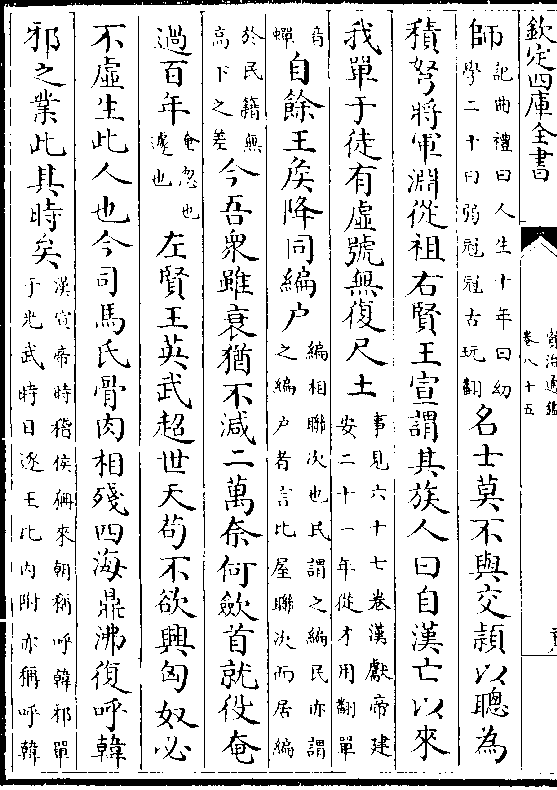 欽定四庫全書
資治通鑑
卷八十五
師記曲禮曰人生十年曰幼學二十曰弱冠冠古玩翻名士莫不與交頴以聰為
積弩將軍淵從祖右賢王宣謂其族人曰自漢亡以來
我單于徒有虛號無復尺土事見六十七卷漢獻帝建安二十一年從才用翻單
音蟬自餘王矦降同編户編相聯次也民謂之編民亦謂之編户者言比屋聯次而居編
於民籍無高下之差今吾衆雖衰猶不減二萬奈何歛首就役奄
過百年奄忽也遽也左賢王英武超世天苟不欲興匈奴必
不虛生此人也今司馬氏骨肉相殘四海鼎沸復呼韓
邪之業此其時矣漢宣帝時稽侯狦來朝稱呼韓邪單于光武時日逐王比内附亦稱呼韓